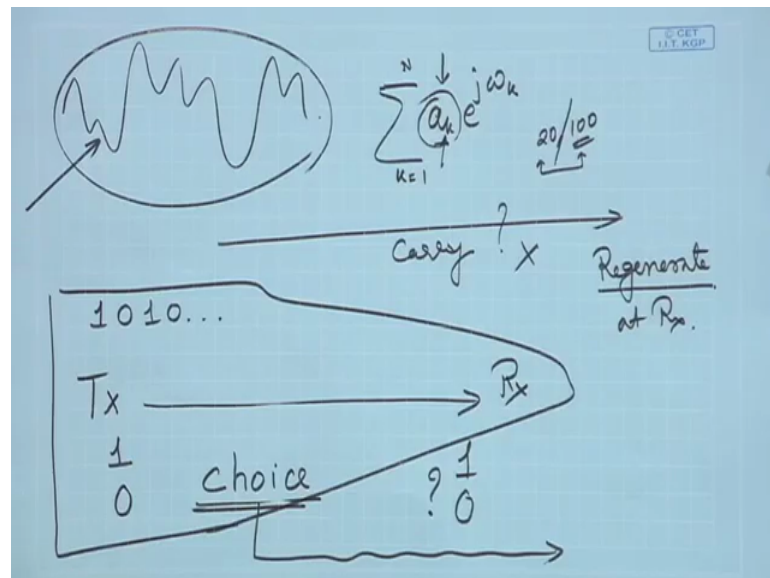 © CET
I.I.T. KGP
N
∑ aₖ e^jωₖ
k=1
20/100
Carry ? x
Regenerate
at Rx.
1010...
Tx Rx
1 1
0 choice ? 0